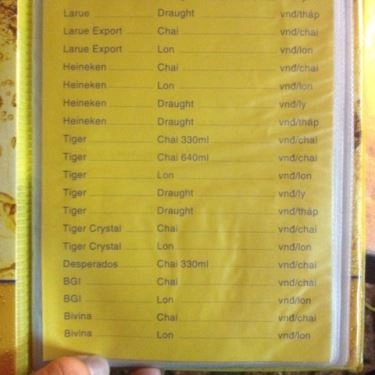 Larue Draught vnđ/tháp
Larue Export Chai vnđ/chai
Larue Export Lon vnđ/lon
Heineken Chai vnđ/chai
Heineken Lon vnđ/lon
Heineken Draught vnđ/ly
Heineken Draught vnđ/tháp
Tiger Chai 330ml vnđ/chai
Tiger Chai 640ml vnđ/chai
Tiger Lon vnđ/lon
Tiger Draught vnđ/ly
Tiger Draught vnđ/tháp
Tiger Crystal Chai vnđ/chai
Tiger Crystal Lon vnđ/lon
Desperados Chai 330ml vnđ/chai
BGI Chai vnđ/chai
BGI Lon vnđ/lon
Bivina Chai vnđ/chai
Bivina Lon vnđ/lon